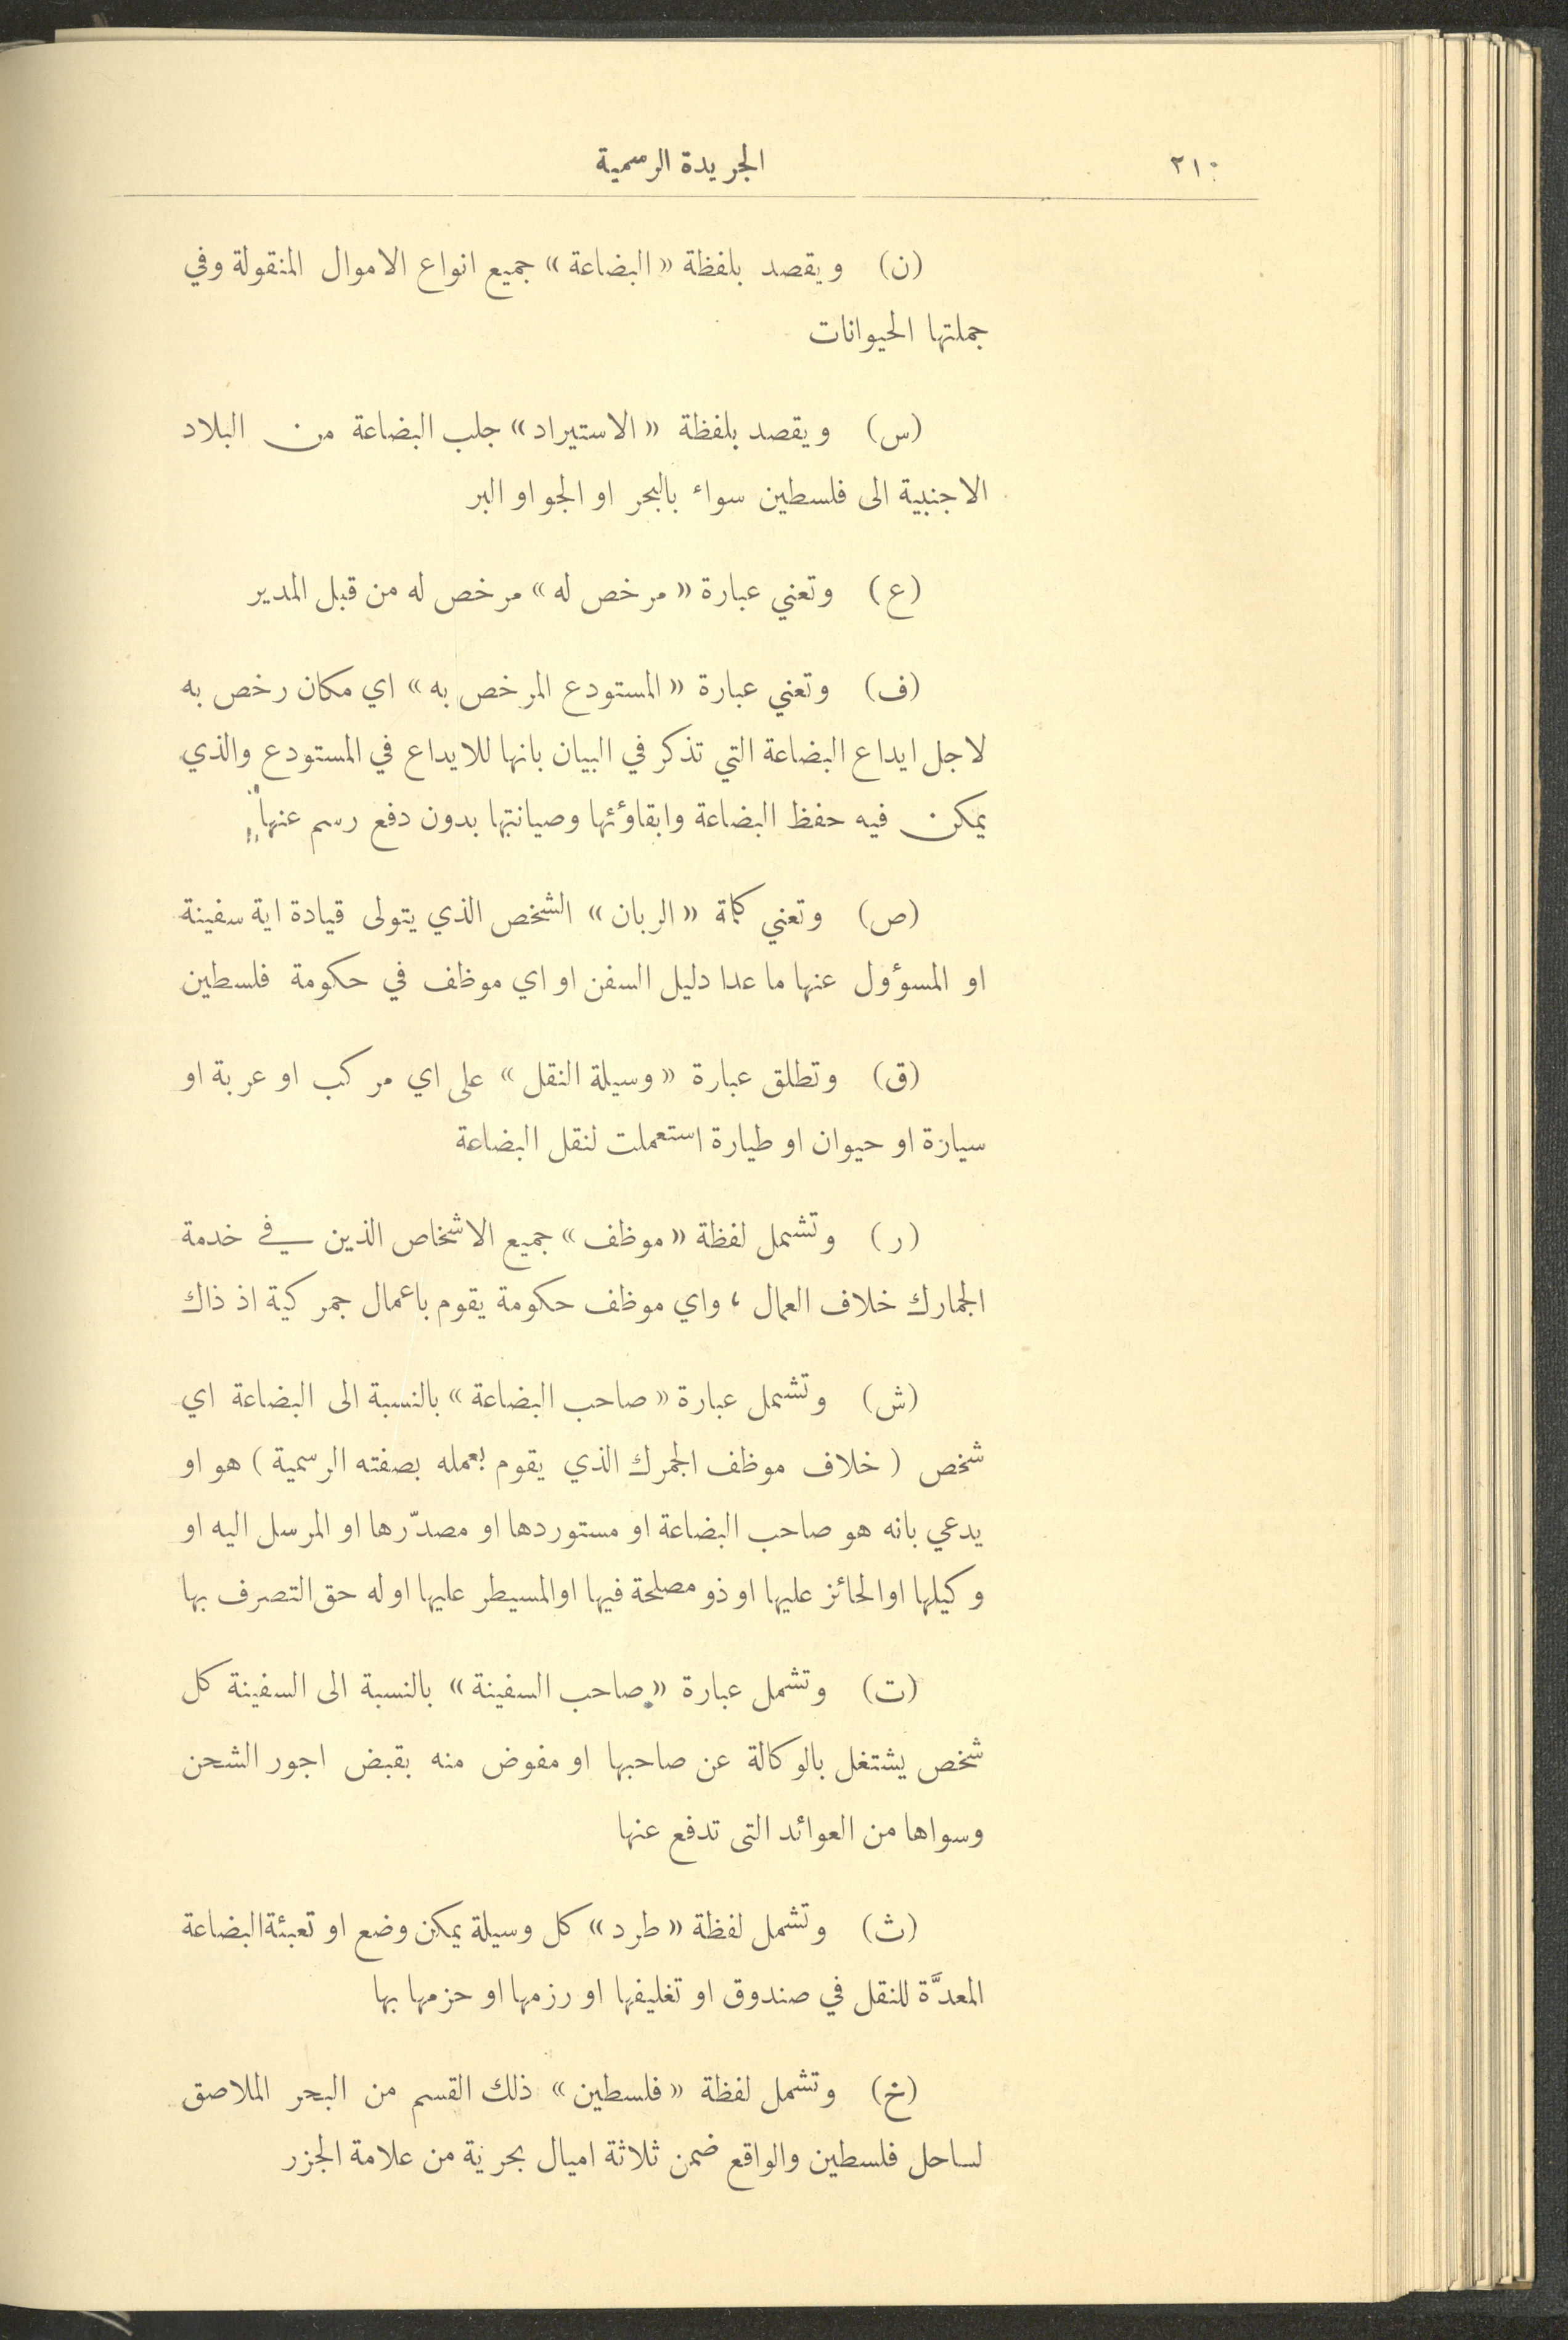 الجريدة الرسمية
(ن) ويقصد بلفظة «البضاعة» جميع انواع الاموال المنقولة وفي
جملتها الحيوانات
(س) ويقصد بلفظة «الاستيراد» جلب البضاعة من البلاد
الاجنبية الى فلسطين سواء بالبحر او الجو او البر
(ع) وتعني عبارة «مرخص له» مرخص له من قبل المدير
(ف) وتعني عبارة «المستودع المرخص به» اي مكان رخص به
لاجل ايداع البضاعة التي تذكر في البيان بانها للايداع في المستودع والذي
يمكن فيه حفظ البضاعة وابقاؤئها وصيانتها بدون دفع رسم عنها
(ص) وتعني كلمة «الربان» الشخص الذي يتولى قيادة اية سفينة
او المسؤول عنها ما عدا دليل السفن او اي موظف في حكومة فلسطين
(ق) وتطلق عبارة «وسيلة النقل» على اي مركب او عربة او
سيارة او حيوان او طيارة استعملت لنقل البضاعة
(ر) وتشمل لفظة «موظف» جميع الاشخاص الذين في خدمة
الجمارك خلاف العمال ، واي موظف حكومة يقوم باعمال جمركية اذ ذاك
(ش) وتشمل عبارة «صاحب البضاعة» بالنسبة الى البضاعة اي
شخص (خلاف موظف الجمرك الذي يقوم بعمله بصفته الرسمية) هو او
يدعي بانه هو صاحب البضاعة او مستوردها او مصدّرها او المرسل اليه او
وكيلها او الحائز عليها او ذو مصلحة فيها او المسيطر عليها او له حق التصرف بها
(ت) وتشمل عبارة «صاحب السفينة» بالنسبة الى السفينة كل
شخص يشتغل بالوكالة عن صاحبها او مفوض منه بقبض اجور الشحن
وسواها من العوائد التى تدفع عنها
(ث) وتشمل لفظة «طرد» كل وسيلة يمكن وضع او تعبئة البضاعة
المعدَّة للنقل في صندوق او تغليفها او رزمها او حزمها بها
(خ) وتشمل لفظة «فلسطين» ذلك القسم من البحر الملاصق
لساحل فلسطين والواقع ضمن ثلاثة اميال بحرية من علامة الجزر